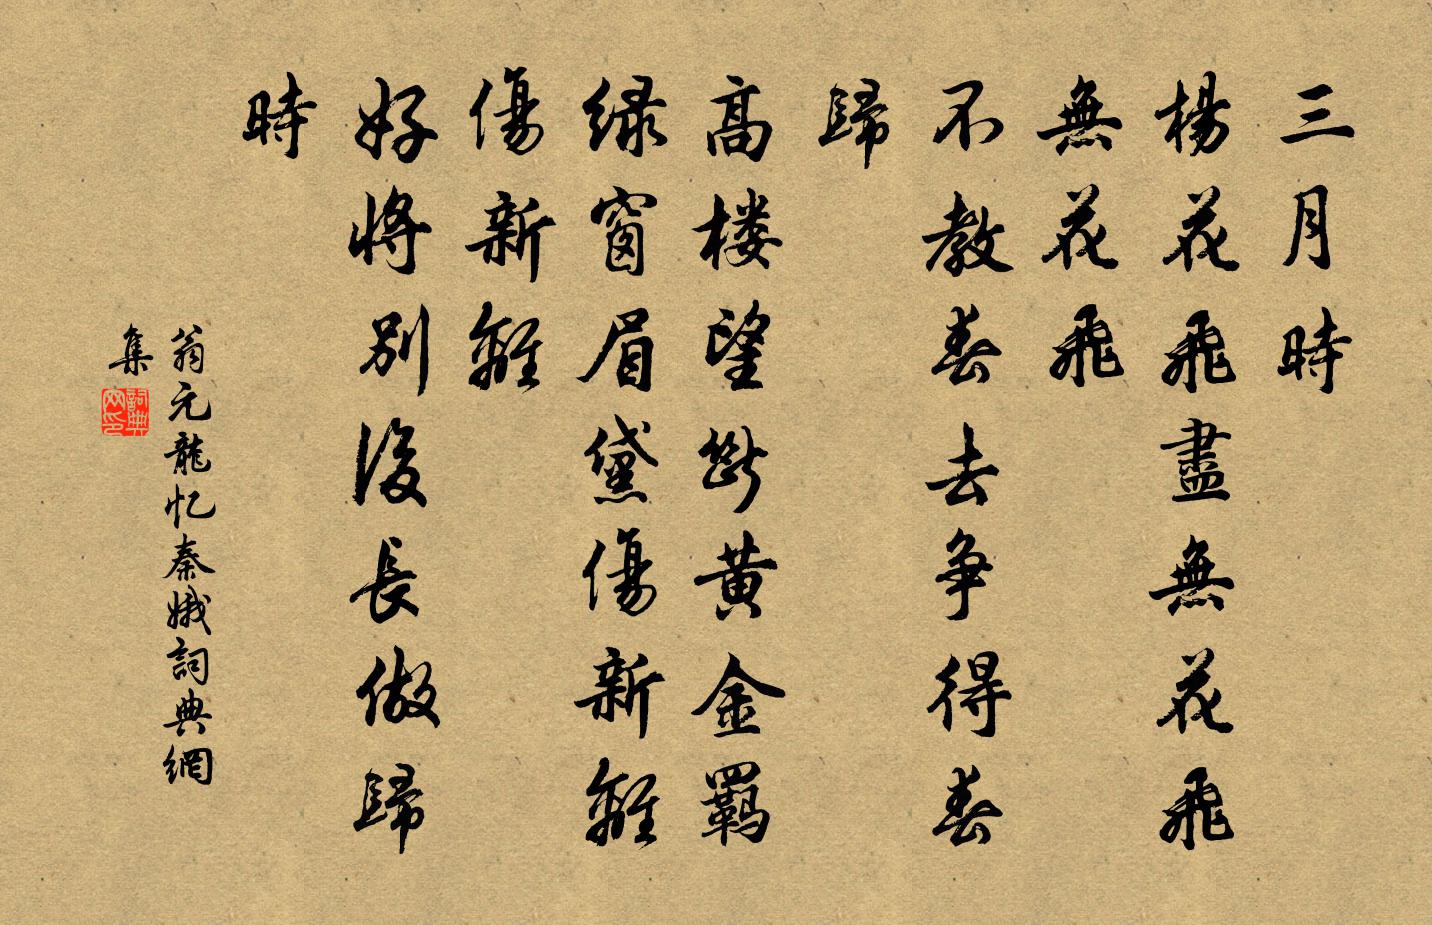 三月時
楊花飛盡無花飛
無花飛
不教春去争得春
歸
高楼望断黄金羈
緑窗眉黛傷新離
傷新離
好將別後長做歸
時
翁元龍忆秦娥詞典網
集
詞典
网印